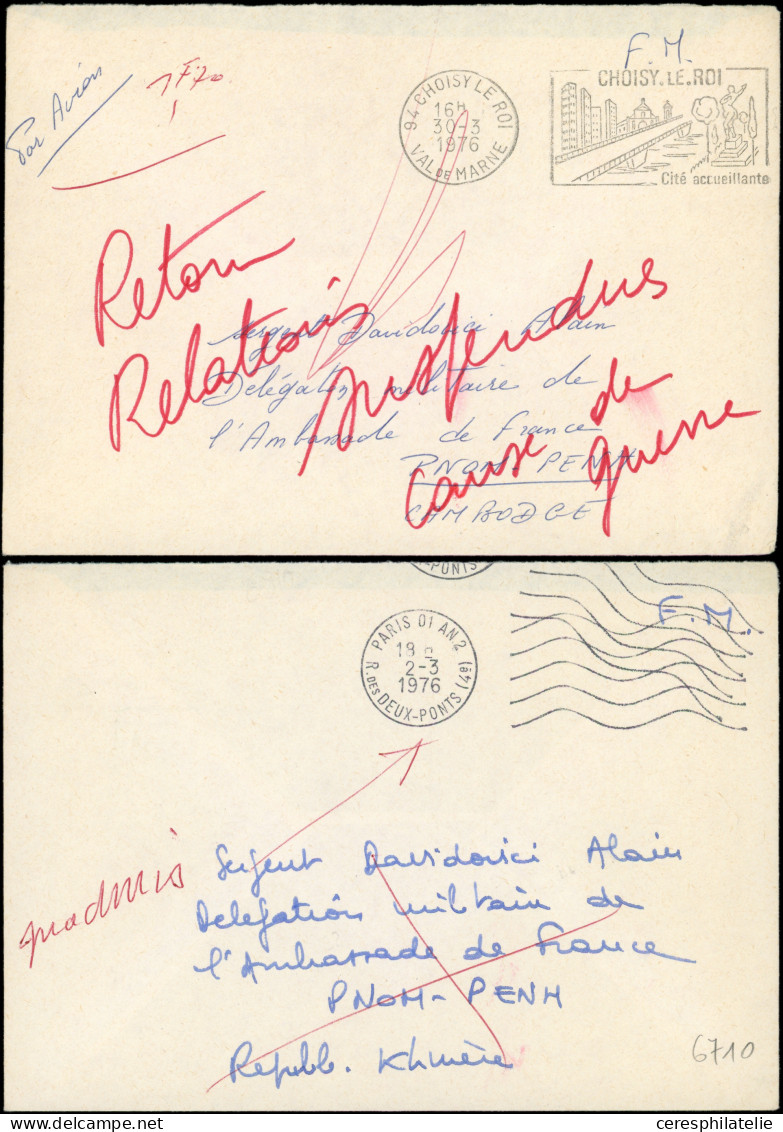 F.M.
Par Avion
1F70
94 CHOISY LE ROI
16H
30-3
1976
VAL DE MARNE
CHOISY.LE.ROI
Cité accueillante
Retour
Relations suspendues
cause de
guerre
Sergent Davidovici Alain
Délégation militaire de
l'Ambassade de France
PNOM-PENH
CAMBODGE
-PONTS
F.M.
PARIS 01 AN 2
18
2-3
1976
R. DES DEUX-PONTS (4e)
inadmis
Sergent Davidovici Alain
Delegation militaire de
l'Ambassade de France
PNOM-PENH
Republ. Khmère
6710
ceresphilatelie